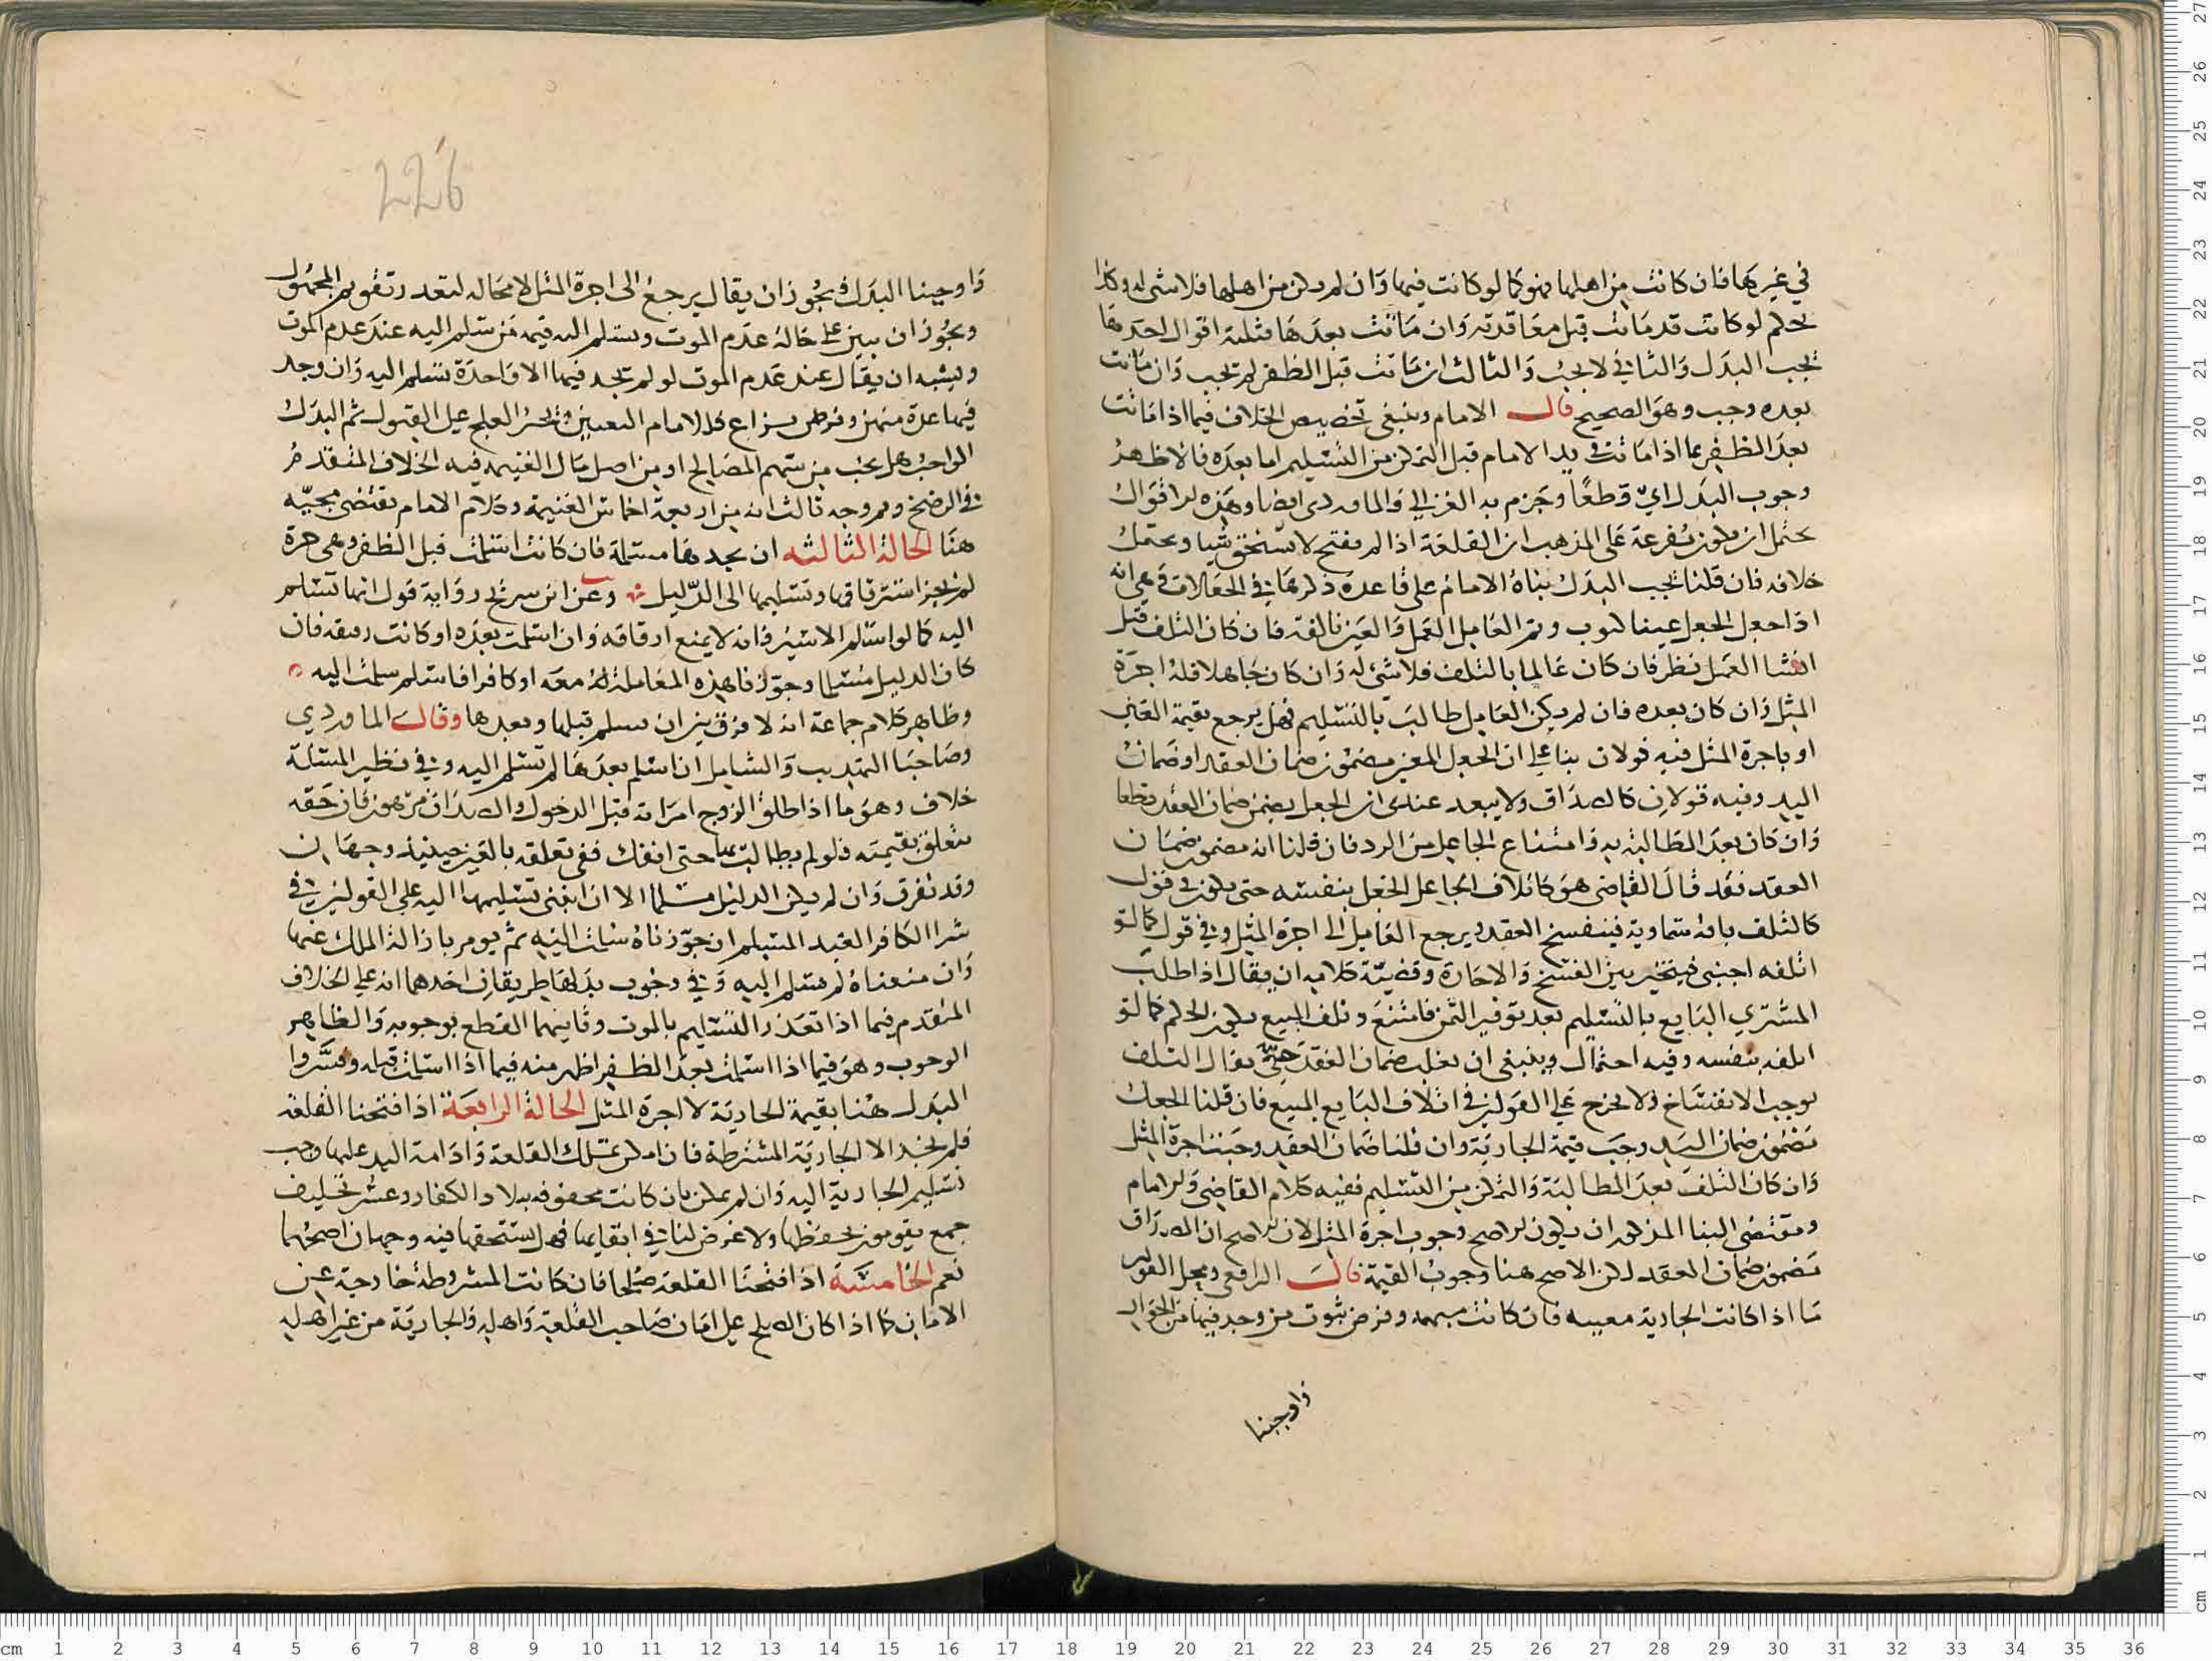 في غيرها فان كانت من اهلها فهو كما لو كانت فيها وان لم يكن من اهلها فلا شى له وكذا
الحكم لو كانت قد ماتت قبل معاقدته وان ماتت بعدها فثلثة اقوال احدها
يجب البدل والثاني لا يجب والثالث ان ماتت قبل الظفر لم يجب وان ماتت
بعده وجب وهو الصحيح قال الامام وينبغى تخصيص الخلاف فيما اذا ماتت
بعد الظفر بما اذا ماتت في يد الامام قبل التمكن من التسليم اما بعده فالاظهر
وجوب البدل اي قطعا وجزم به الغزالي والماوردى ايضا وهذه الاقوال
يحتمل ان يكون مفرعة على المذهب ان القلعة اذا لم يفتح لا يستحق شيا ويحتمل
خلافه فان قلنا يجب البدل بناه الامام على قاعدة ذكرها في الجعالات وهي انه
اذا جعل الجعل عينا كثوب وتم العامل العمل والعين تالفة فان كان التلف قبل
انشا العمل نظر فان كان عالما بالتلف فلا شى له وان كان جاهلا فله اجرة
المثل وان كان بعده فان لم يكن العامل طالب بالتسليم فهل يرجع بقيمة العين
او باجرة المثل فيه قولان بنا على ان الجعل المعين مضمون ضمان العقد او ضمان
اليد وفيه قولان كالصداق ولا يبعد عندى ان الجعل يضمن ضمان العقد قطعا
وان كان بعد المطالبة به وامتناع الجاعل من الرد فان قلنا انه مضمون ضمان
العقد فقد قال القاضى هو كاتلاف الجاعل الجعل بنفسه حتى يكون في قول
كالتلف بافة سماوية فينفسخ العقد ويرجع العامل الى اجرة المثل وفي قول كما لو
اتلفه اجنبى فيتخير بين الفسخ والاجازة وقضية كلامه ان يقال اذا طلب
المشتري البايع بالتسليم بعد توفير الثمن فامتنع وتلف المبيع يكون الحكم كما لو
اتلفه بنفسه وفيه احتمال وينبغى ان يغلب ضمان العقد حتى يقال التلف
يوجب الانفساخ ولا يخرج على القولين في اتلاف البايع المبيع فان قلنا الجعل
مضمون ضمان اليد وجب قيمة الجارية وان قلنا ضمان العقد وجبت اجرة المثل
وان كان التلف بعد المطالبة والتمكن من التسليم ففيه كلام القاضي والامام
ومقتضى البنا المذكور ان يكون الاصح وجوب اجرة المثل لان الاصح ان الصداق
مضمون ضمان العقد لكن الاصح هنا وجوب القيمة قال الرافعي ومحل القولين
ما اذا كانت الجارية معينه فان كانت مبهمه وفرض موت من وجد فيها من الجوار
واوجبنا
226
واوجبنا البدل يجوز ان يقال يرجع الى اجرة المثل لا محاله لتعذر تقويم المجهول
ويجوز ان يبين على حالة عدم الموت ويسلم اليه قيمة من تسلم اليه عند عدم الموت
ويشبه ان يقال عند عدم الموت لو لم يجد فيها الا واحدة تسلم اليه وان وجد
فيها عدة منهن وفرض نزاع فللامام التعيين ويجبر العلج على القبول ثم البدل
الواجب هل يجب من سهم المصالح او من اصل مال الغنيمه فيه الخلاف المتقدم
في الرضخ وثم وجه ثالث انه من اربعة اخماس الغنيمة وكلام الامام يقتضى مجيئه
هنا الحالة الثالثه ان يجدها مسلمة فان كانت اسلمت قبل الظفر وهى حرة
لم يجز استرقاقها وتسليمها الى الدليل وعن ابن سريج رواية قول انها تسلم
اليه كما لو اسلم الاسير فانه لا يمنع ارقاقه وان اسلمت بعده او كانت رقيقه فان
كان الدليل مسلما وجوزنا هذه المعاملة معه او كافرا فاسلم سلمت اليه
وظاهر كلام جماعة انه لا فرق بين ان يسلم قبلها وبعدها وقال الماوردي
وصاحبا التهذيب والشامل ان اسلم بعدها لم تسلم اليه وفي نظير المسئلة
خلاف وهو ما اذا طلق الزوج امراته قبل الدخول والصداق مرهون فان حقه
يتعلق بقيمته فلو لم يطالب بها حتى انفك ففي تعلقه بالعين حينيذ وجهان
وقد تفرق وان لم يكن الدليل مسلما الا ان انبنى تسليمها اليه على القولين في
شرا الكافر العبد المسلم ان جوزناه سلمت اليه ثم يومر بازالة الملك عنها
وان منعناه لم تسلم اليه وفي وجوب بدلها طريقان احدهما انه على الخلاف
المتقدم فيما اذا تعذر التسليم بالموت وثانيهما القطع بوجوبه والظاهر
الوجوب وهو فيما اذا اسلمت بعد الظفر اظهر منه فيما اذا اسلمت قبله وفسروا
البدل هنا بقيمة الجارية لا اجرة المثل الحالة الرابعة اذا فتحنا القلعة
فلم يجد الا الجارية المشترطة فان امكن تملك القلعة وادامة اليد عليها وجب
تسليم الجارية اليه وان لم يمكن بان كانت محفوفه ببلاد الكفار وعسر تخليف
جمع يقومون بحفظها ولا غرض لنا في ابقايها فهل يستحقها فيه وجهان اصحهما
نعم الخامسة اذا فتحنا القلعة صلحا فان كانت المشروطة خارجة عن
الامان كما اذا كان الصلح على امان صاحب القلعة واهله والجارية من غير اهله